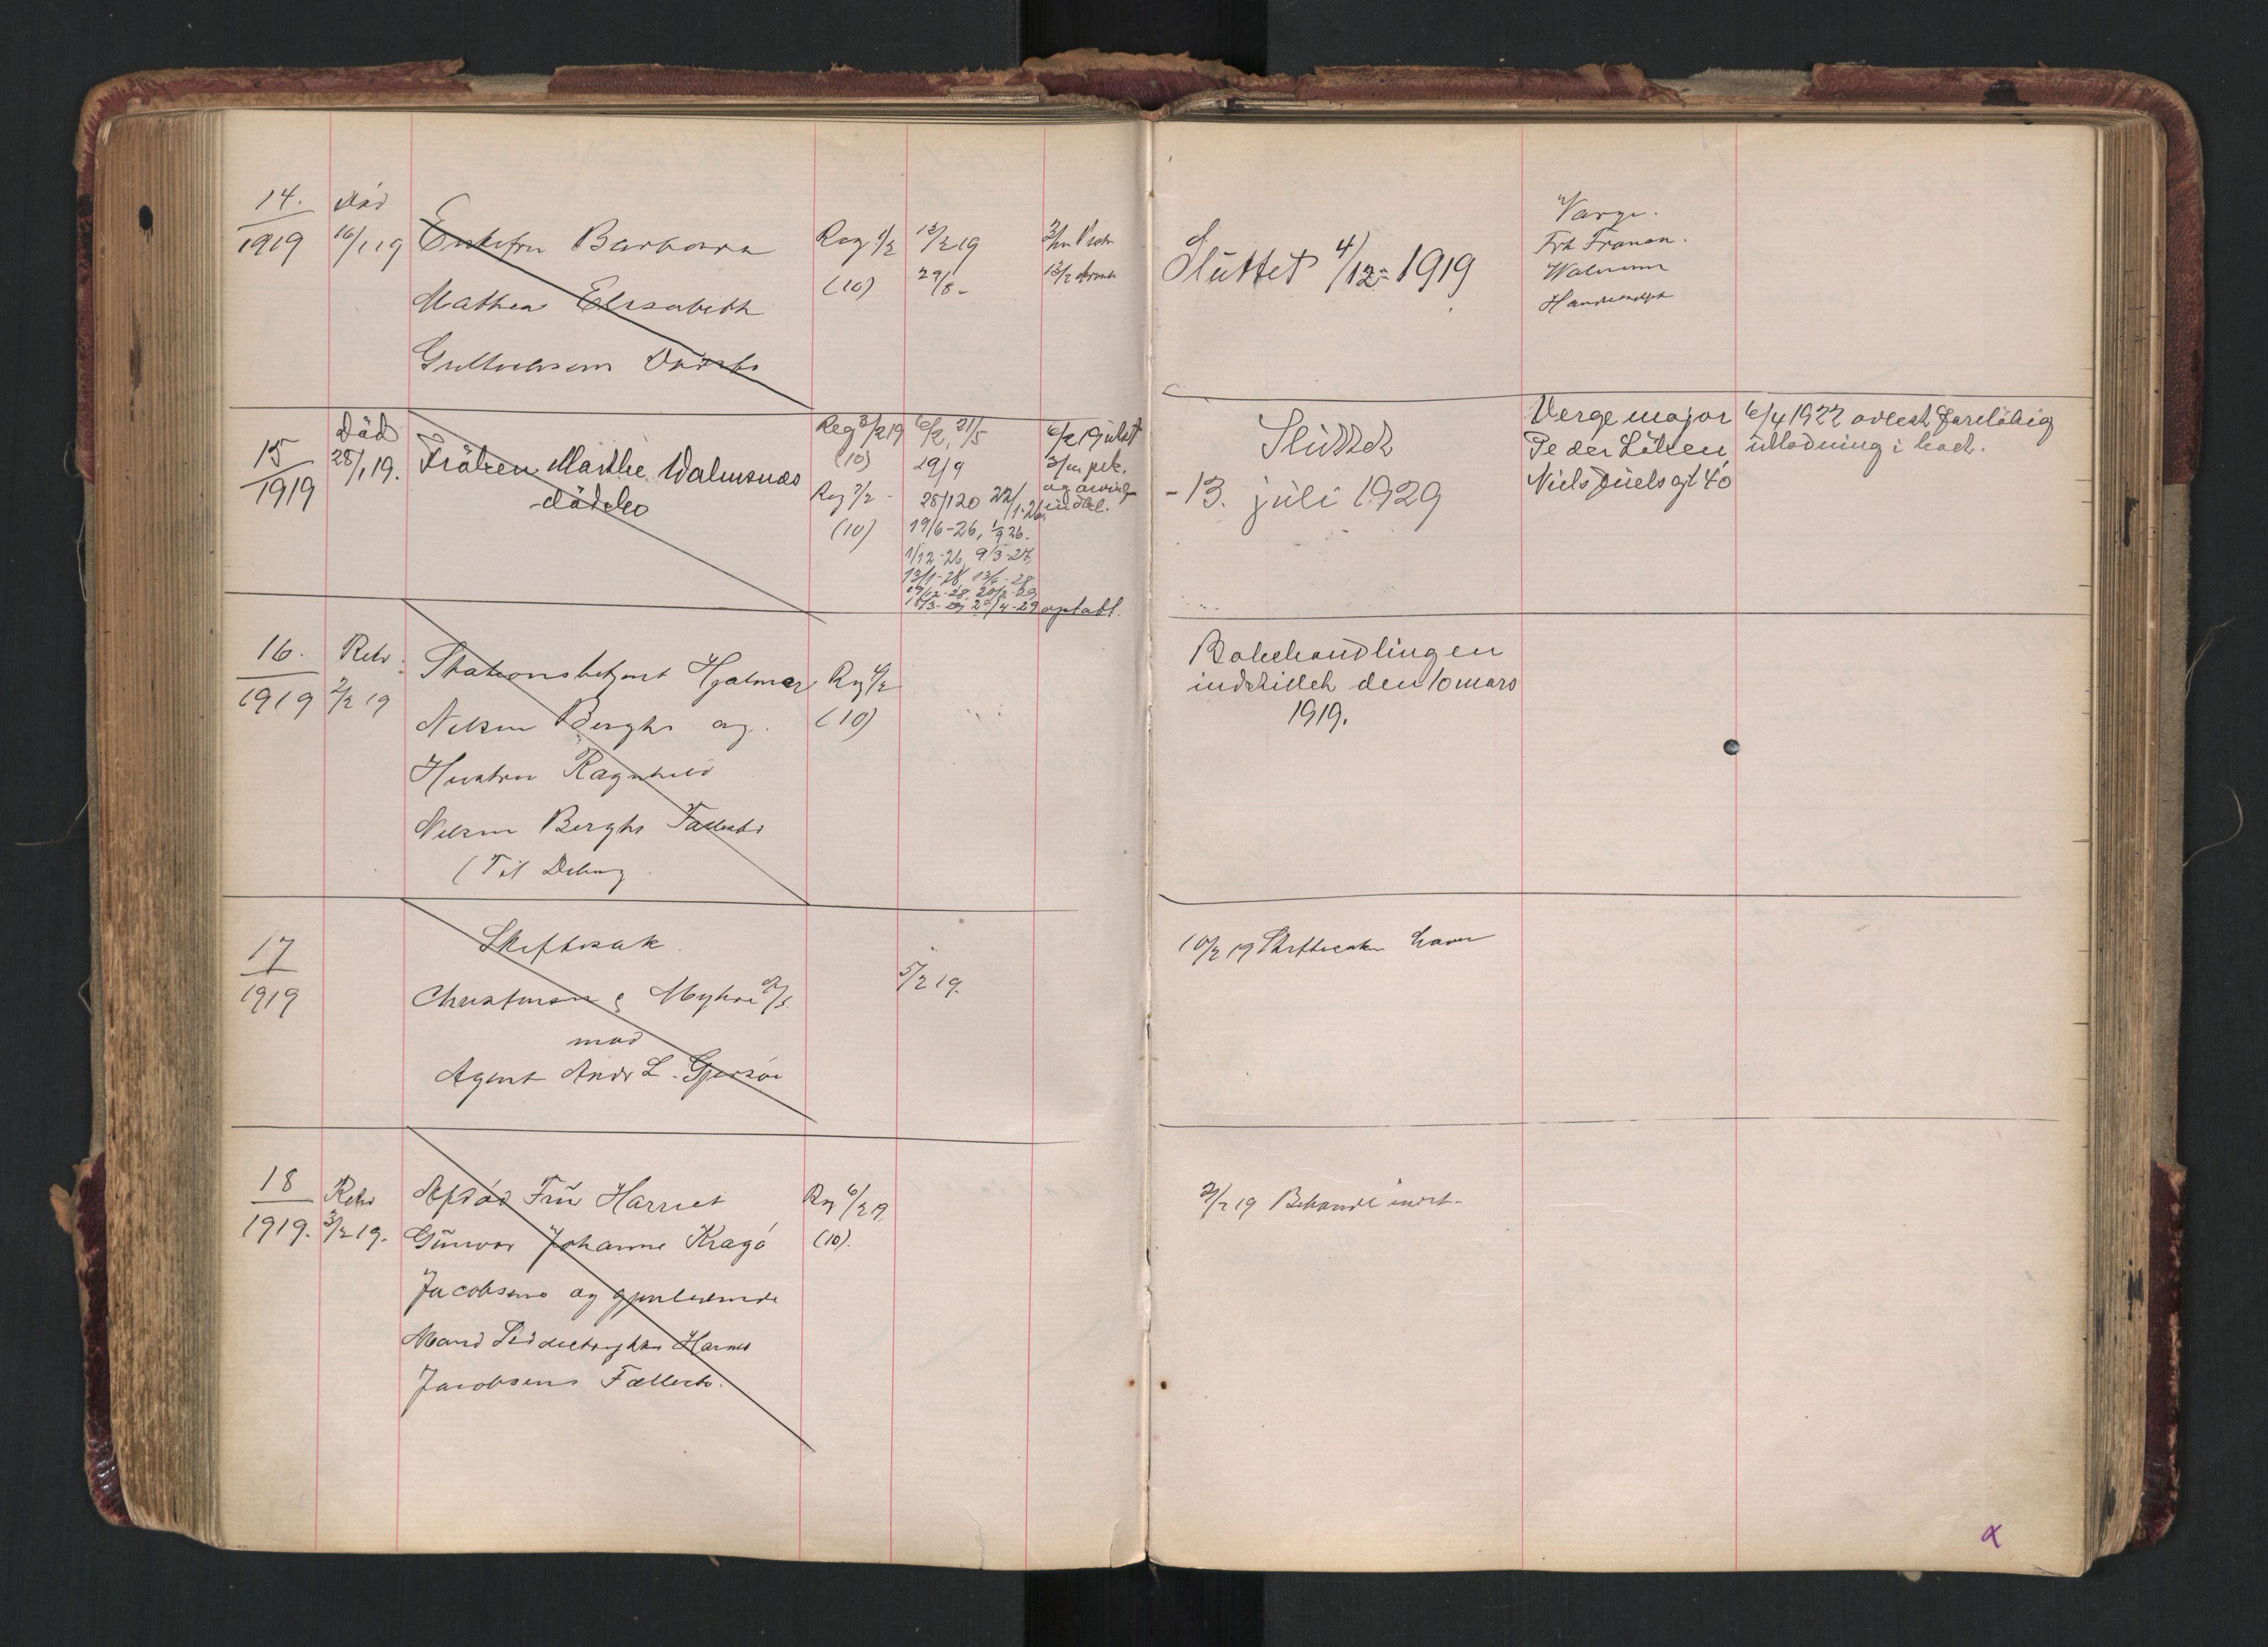 14.
1919
Död
16/1 19
Enkefru Barbara
Mathea Elisabeth
Gulbransens Dödsbo
Reg 1/2
(10)
13/2 19
29/8 -
3/m Prokl
13/2
Sluttet 4/12-1919
Værge.
Frk Franca.
Walmsnæs
15
1919
Död
28/1 19.
Fröken Marthe Walmsnæs
dödsbo
Reg 3/2 19
(10)
Reg 7/2 -
(10)
6/2, 21/5
29/9
28/1 20 22/1-26
19/6-26, 1/9 26.
1/12-26, 9/3-27,
13/1-28, 13/6-28
19/12-28, 20/2-29
16/3-29 29/4-29 optatt.
6/2 19 utest
3/m prk.
og arving
indkl.
Sluttet
- 13. juli 1929
Verge major
Peder Lötzen,
Niels Juels gt 40
6/4 1922 avlest foreløbig
utlodning i boet.
16.
1919
Retv.
2/2 19
Stationsbetjent Hjalmar
Nilsen Berghs og
Hustru Ragnhild
Nilsen Berghs Fællesbo
(Til Deling
Reg 4/2
(10)
Bobehandlingen
indstillet den 10 mars
1919.
17
1919
Skiftesak
Christensen & Myhre A/S.
mod
Agent Andr L. Gjersøe
5/2 19.
10/2 19 Skiftesaken hævet
18
1919.
Retv
3/2 19.
Afdöd Fru Harriet
Gunvor Johanne Kragö
Jacobsens og gjenlevende
Mand Hans
Jacobsens Fællesbo.
Reg 6/2 19
(10).
2/2 19 Behandl indst.
α